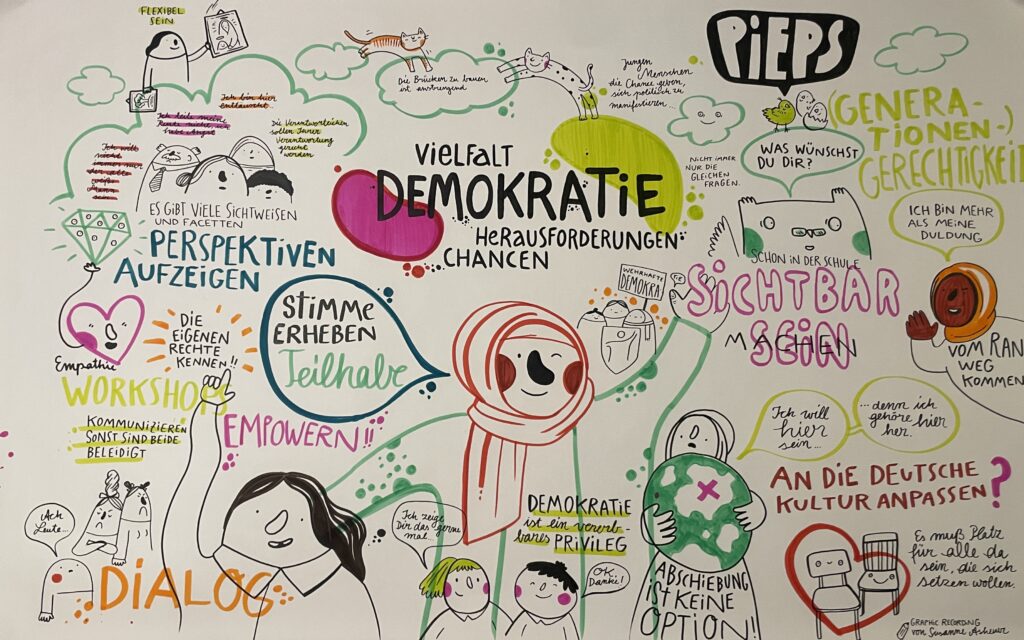 FLEXIBEL
SEIN
Ich bin hier
enttäuscht.
Die Verantwortlichen
sollen Ihrer
Verantwortung
gerecht
werden
ES GIBT VIELE SICHTWEISEN
UND FACETTEN
PERSPEKTIVEN
AUFZEIGEN
Die Brücken zu bauen
ist anstrengend
Jungen
Menschen
die Chance geben,
sich politisch zu
manifestieren...
VIELFALT
DEMOKRATIE
HERAUSFORDERUNGEN
CHANCEN
NICHT IMMER
NUR DIE
GLEICHEN
FRAGEN.
PIEPS
WAS WÜNSCHST
DU DIR?
(GENERA-
TIONEN-)
GERECHTIGKEIT
ICH BIN MEHR
ALS MEINE
DULDUNG
SCHON IN DER SCHULE
SICHTBAR
SEIN
MACHEN
VOM RAN
WEG
KOMMEN
Empathie
DIE
EIGENEN
RECHTE
KENNEN!!
STIMME
ERHEBEN
Teilhabe
WEHRHAFTE
DEMOKRA
WORKSHOPS
KOMMUNIZIEREN
SONST SIND BEIDE
BELEIDIGT
EMPOWERN!!
Ich will
hier
sein...
...denn ich
gehöre hier
her.
AN DIE DEUTSCHE
KULTUR ANPASSEN?
Ach
Leute...
DIALOG
Ich zeige
Dir das gerne
mal...
OK,
Danke!
DEMOKRATIE
ist ein vererb-
bares PRIVILEG
ABSCHIEBUNG
IST KEINE
OPTION!
Es muß Platz
für alle da
sein, die sich
setzen wollen.
GRAPHIC RECORDING
von Susanne Asheuer